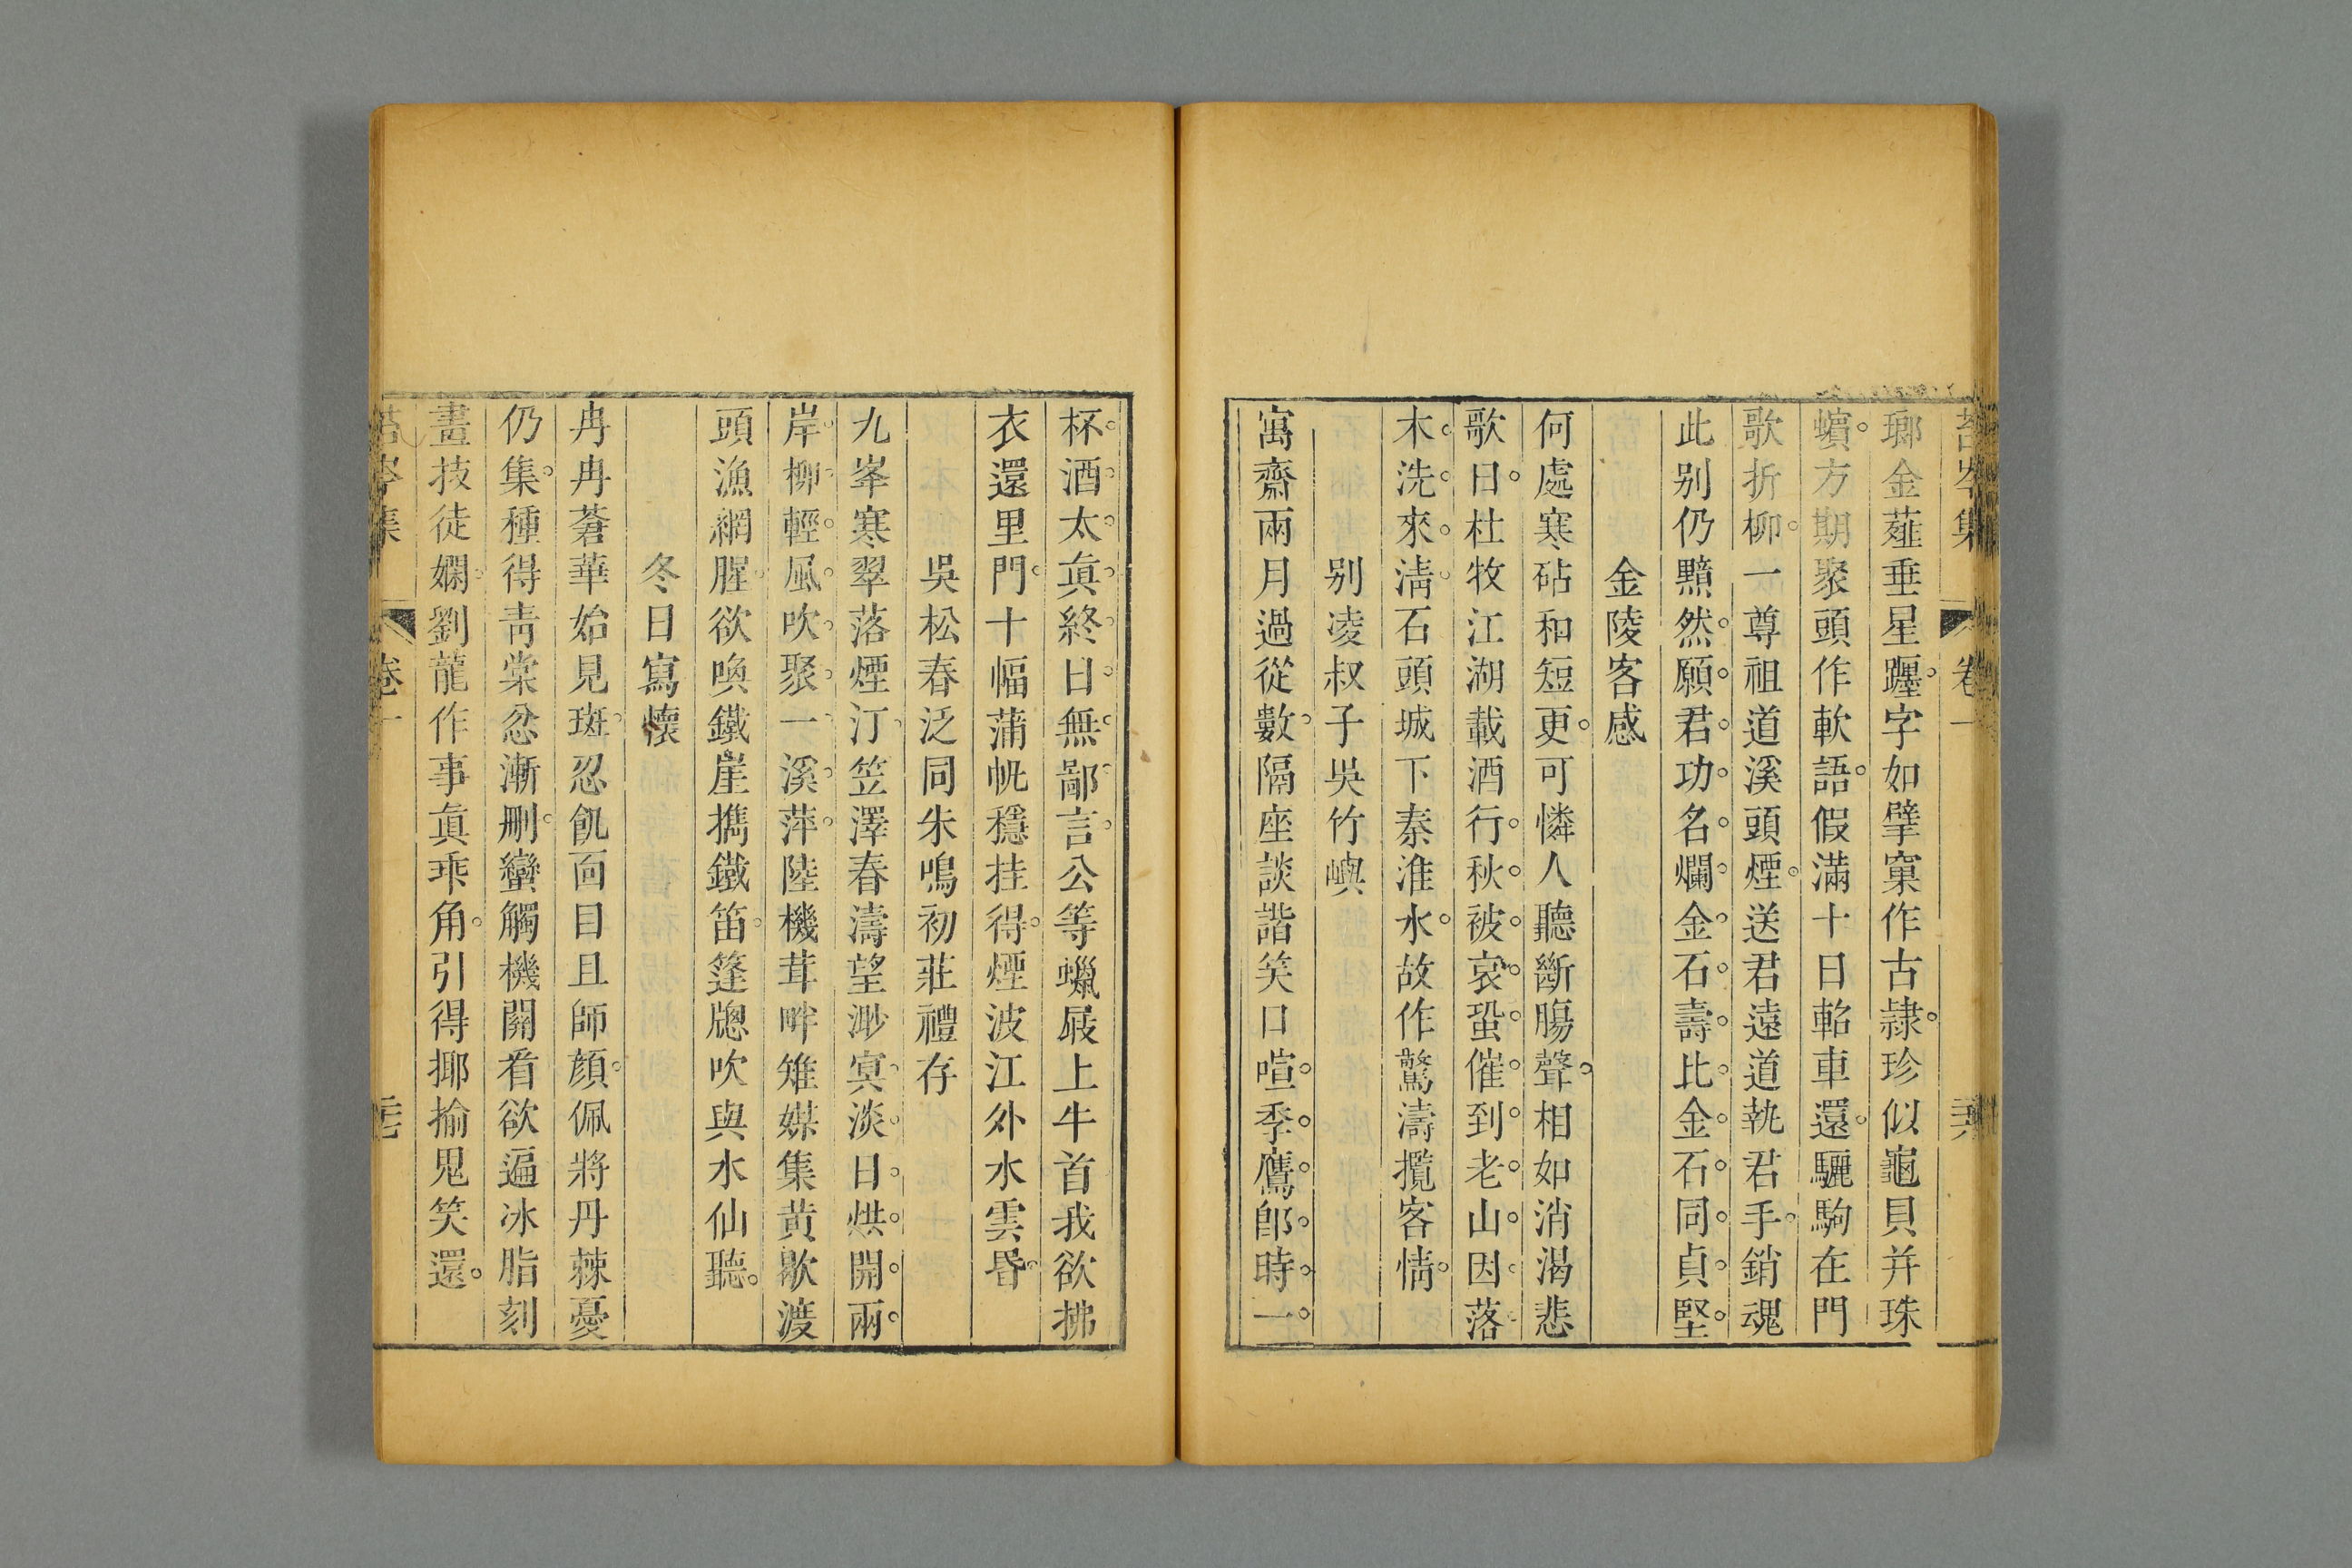 苔岑集 卷一 二六
瑯金薤垂星躔字如擘窠作古隸珍似龜貝并珠
蠙方期聚頭作軟語假滿十日軺車還驪駒在門
歌折柳一尊祖道溪頭煙送君遠道執君手銷魂
此别仍黯然願君功名爛金石壽比金石同貞堅
金陵客感
何處寒砧和短更可憐人聽斷腸聲相如消渴悲
歌日杜牧江湖載酒行秋被哀蛩催到老山因落
木洗來淸石頭城下秦淮水故作驚濤攪客情
别凌叔子吳竹嶼
寓齋兩月過從數隔座談諧笑口喧季鷹郎時一
杯酒太眞終日無鄙言公等蠟屐上牛首我欲拂
衣還里門十幅蒲帆穩挂得煙波江外水雲昏
吳松春泛同朱鳴初莊禮存
九峯寒翠落煙汀笠澤春濤望渺冥淡日烘開兩
岸柳輕風吹聚一溪萍陸機茸畔雉媒集黄歇渡
頭漁網腥欲喚鐵崖攜鐵笛篷牕吹與水仙聽
冬日寫懷
冉冉蒼華始見斑忍飢面目且師顔佩將丹棘憂
仍集種得靑棠忿漸刪蠻觸機關看欲遍冰脂刻
畫技徒嫻劉龍作事眞乖角引得揶揄鬼笑還
苔岑集 卷一 二七